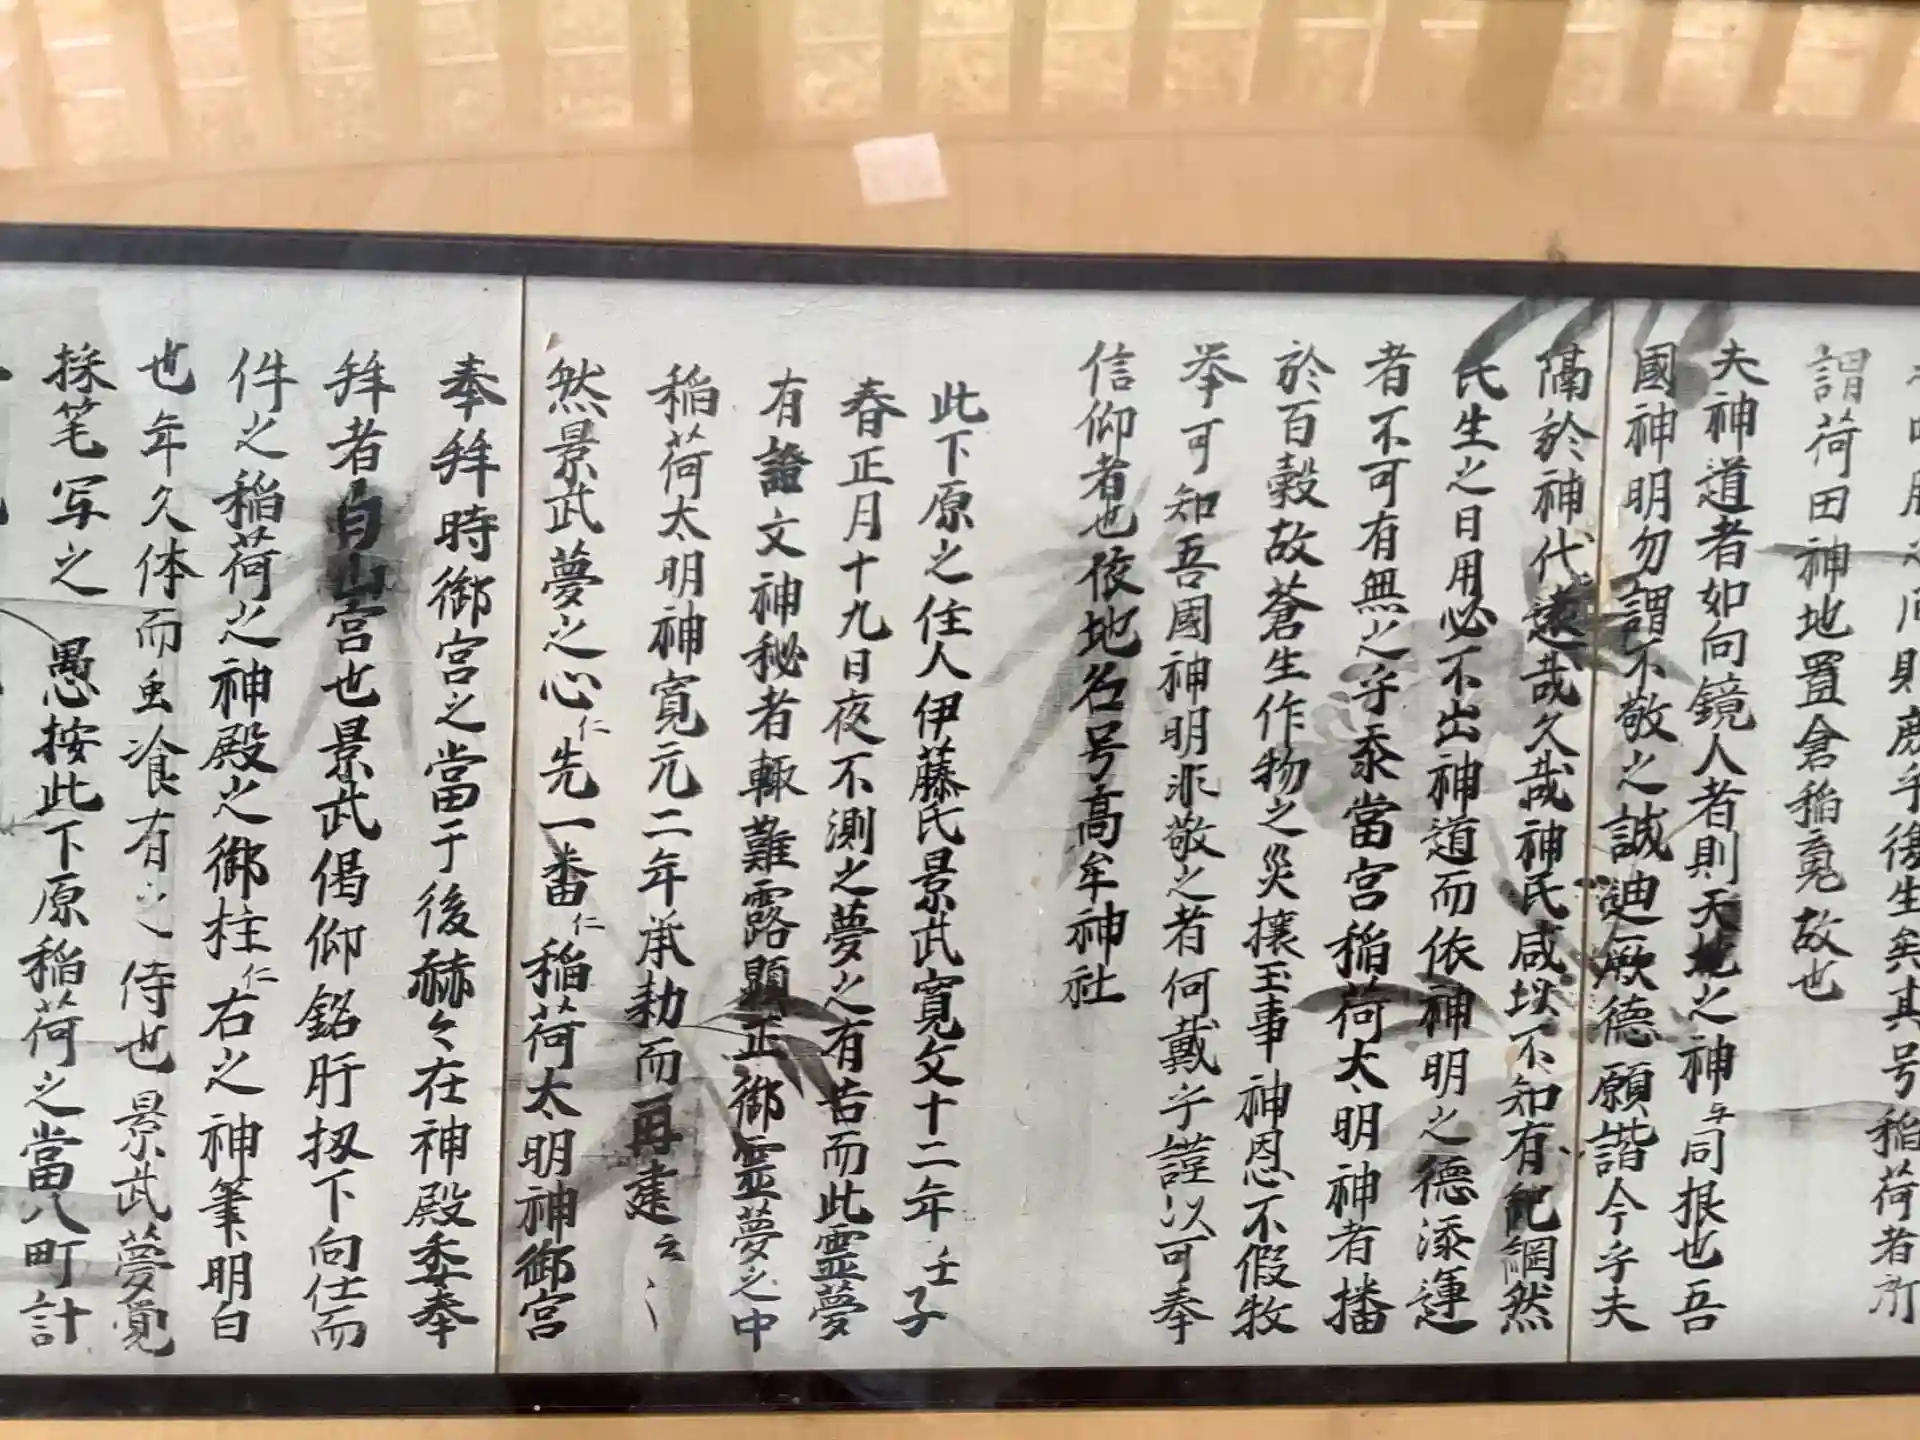 則鹿乎後生矣其号稲荷者所
謂荷田神地置倉稲菟故也
夫神道者如向鏡人者則天地之神与同根也吾
國神明勿謂不敬之誠廸厥德願諧今乎夫
隔於神代遠哉久哉神民咸以不知有紀綱然
民生之日用必不出神道而依神明之德添運
者不可有無之乎忝當宮稲荷太明神者播
於百穀故蒼生作物之災攘玉事神恩不假牧
挙可知吾國神明非敬之者何戴乎謹以可奉
信仰者也依地名号高牟神社
此下原之住人伊藤氏景武寛文十二年壬子
春正月十九日夜不測之夢之有告而此霊夢
有證文神秘者輙難露顕正御霊夢之中
稲荷太明神寛元二年承勅而再建云〻
然景武夢之心仁先一番仁稲荷太明神御宮
奉拜時御宮之當于後赫々在神殿委奉
拜者白山宮也景武偈仰銘肝扨下向仕而
件之稲荷之神殿之御柱仁右之神筆明白
也年久体而虫飡有之侍也景武夢覚
採笔写之 愚按此下原稲荷之當八町計